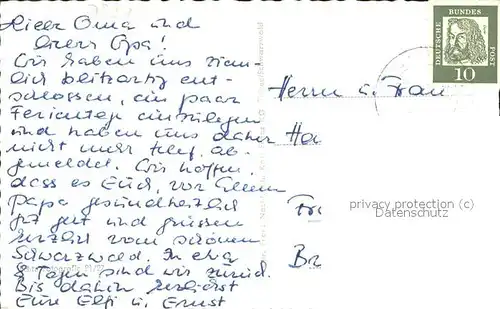 Liebe Oma und
lieber Opa!
Wir haben uns ziem-
lich blitzartig ent-
schlossen, ein paar
Ferientage einzulegen
und haben uns daher
nicht mehr telef. ab-
gemeldet. Wir hoffen,
dass es Euch, vor allem
Papa gesundheitlich
gut geht und grüssen
herzlich vom schönen
Schwarzwald. In etwa
8 Tagen sind wir zurück.
Bis dahin herzlichst
Eure Elfi u. Ernst
Herrn u. Frau
Ha
Fr
Br
DEUTSCHE
BUNDES
POST
10
privacy protection (c)
Datenschutz